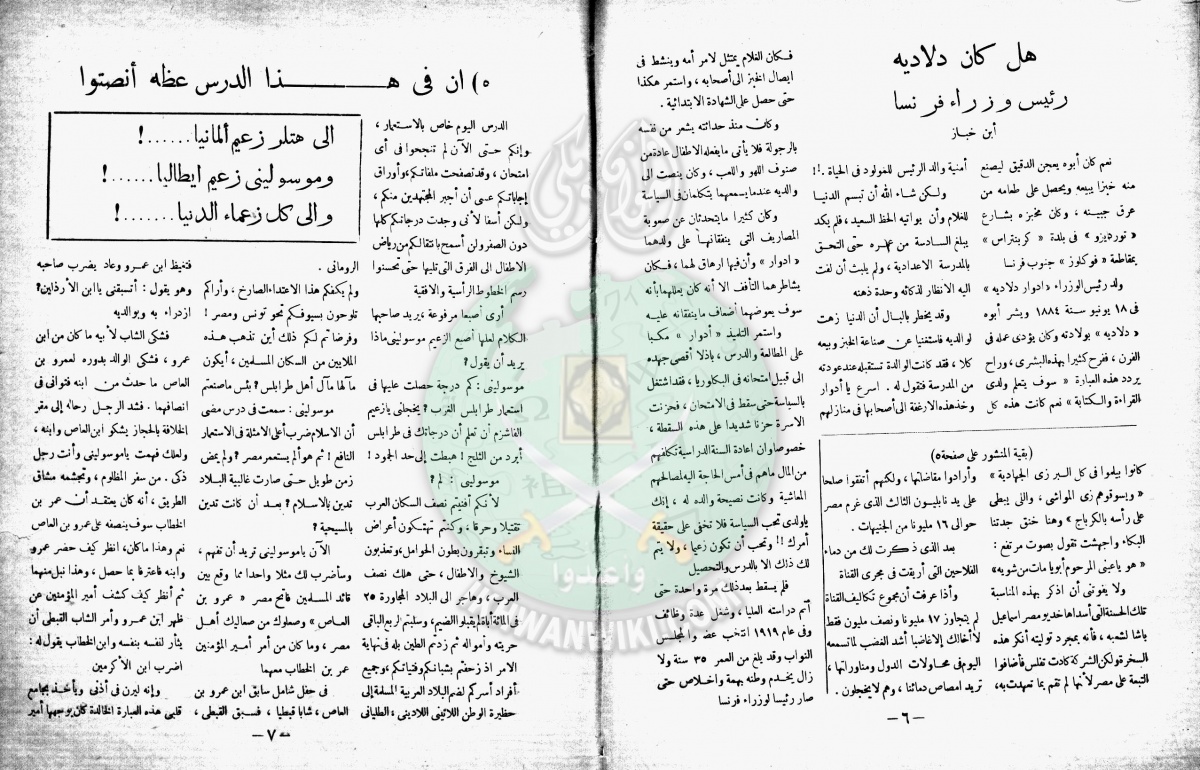 هل كان دلاديه
رئيس وزراء فرنسا
ابن خباز
نعم كان أبوه يعجن الدقيق ليصنع
منه خبزا يبيعه ويحصل على طعامه من
عرق جبينه ، وكان مخبزه بشارع
« تورديزو » فى بلدة « كربنتراس »
بمقاطعة « فوكلوز » جنوب فرنسا
ولد رئيس الوزراء « ادوار دلاديه »
فى ١٨ يونيو سنة ١٨٨٤ وبشر أبوه
« دلاديه » بولادته وكان يؤدى عمله فى
الفرن ، ففرح كثيرا بهذه البشرى ، وراح
يردد هذه العبارة « سوف يتعلم ولدى
القراءة والكتابة » نعم كانت هذه كل
أمنية والد الرئيس للمولود فى الحياة . !!
ولكن شاء الله أن تبسم الدنيا
للغلام وأن يواتيه الحظ السعيد ، فلم يكد
يبلغ السادسة من عمره حتى التحق
بالمدرسة الاعدادية ، ولم يلبث أن لفت
اليه الانظار لذكائه وحدة ذهنه
وقد يخطر بالبال أن الدنيا زهت
لوالديه فاستغنيا عن صناعة الخبز وبيعه
كلا ، فقد كانت الوالدة تستقبله عند عودته
من المدرسة فتقول له . اسرع يا أدوار
وخذ هذه الارغفة الى أصحابها فى منازلهم
فكان الغلام يمتثل لامر أمه وينشط فى
ايصال الخبز الى أصحابه ، واستمر هكذا
حتى حصل على الشهادة الابتدائية .
وكان منذ حداثته يشعر من نفسه
بالرجولة فلا يأتى ما يفعله الاطفال عادة من
صنوف اللهو واللعب ، وكان ينصت الى
والديه عندما يسمعهما يتكلمان فى السياسة
وكان كثيرا ما يتحدثان عن صعوبة
المصاريف التى ينفقانها على ولدهما
« ادوار » وأن فيها ارهاق لهما ، فكان
يشاطرهما التأفف الا أنه كان يعللهما بأنه
سوف يعوضهما أضعاف ما ينفقانه عليه
واستمر التلميذ « أدوار » مكبا
على المطالعة والدرس ، باذلا أقصى جهده
الى قبيل امتحانه فى البكلوريا ، فقد اشتغل
بالسياسة حتى سقط فى الامتحان ، فحزنت
الاسرة حزنا شديدا على هذه السقطة ،
خصوصا وان اعادة السنة الدراسية تكلفهم
من المال ما هم فى أمس الحاجة اليه لصالحهم
المعاشية وكانت نصيحة والده له ، إنك
يا ولدى تحب السياسة فلا تخفى على حقيقة
أمرك !! وتحب أن تكون زعيما ، ولا يتم
لك ذلك الا بالدرس والتحصيل
فلم يسقط بعد ذلك مرة واحدة حتى
أتم دراسته العليا ، وشغل عدة وظائف
وفى عام ١٩١٩ انتخب عضوا لمجلس
النواب وقد بلغ من العمر ٣٥ سنة ولا
زال يخدم وطنه بهمة واخلاص حتى
صار رئيسا لوزراء فرنسا
(بقية المنشور على صفحة ٥)
كانوا بيلموا فى كل البير زى الجهادية »
« ويسوقوهم زى المواشى ، واللى يبطى
على رأسه بالكرباج » وهنا خنق جدتنا
البكاء واجهشت تقول بصوت مرتفع :
« هو يا عينى المرحوم أبويا مات من شويه»
ولا يفوتنى أن اذكر بهذه المناسبة
تلك الحسنة التى أسداها خديو مصر اسماعيل
باشا لشعبه ، فأنه بمجرد توليته أنكر هذه
السخرة ولكن الشركة كادت تفلس فأضافوا
التبعة على مصر لأنها لم تقم بما تعهدت به،
وأرادوا مقاضاتها ، ولكنهم أتفقوا صلحا
على يد نابليون الثالث الذى غرم مصر
حوالى ١٦ مليونا من الجنيهات .
بعد الذى ذكرت لك من دماء
الفلاحين التى أريقت فى مجرى القناة
وأذا عرفت أن مجموع تكاليف القناة
لم يتجاوز ١٧ مليونا ونصف مليون فقط
لا أخالك إلا غاضبا أشد الغضب لما تسمعه
اليوم فى محاولات الدول ومناوراتها ،
تريد امصاص دمائنا ، وهم لا يخجلون .
— ٦ —
٥) ان فى هــــذا الدرس عظه أنصتوا
الى هتلر زعيم ألمانيا......!
وموسولينى زعيم ايطاليا......!
والى كل زعماء الدنيا.......!
الدرس اليوم خاص بالاستعمار ،
وإنكم حتى الآن لم تنجحوا فى أى
امتحان ، وقد تصفحت ملفاتكم وأوراق
إجاباتكم عسى أن أجبر المجتهدين منكم ،
ولكن أسفا لأنى وجدت درجاتكم كلها
دون الصفر ولن أسمح بانتقالكم من رياض
الاطفال الى الفرق التى تليها حتى تحسنوا
رسم الخطوط الرأسية والافقية
أرى أصبعا مرفوعة ، يريد صاحبها
الكلام لعلها أصبع الزعيم موسولينى ماذا
يريد أن يقول ؟
موسولينى : كم درجة حصلت عليها فى
استعمار طرابلس الغرب ؟ يخجلنى يا زعيم
الفاشزم أن تعلم أن درجاتك فى طرابلس
أبرد من الثلج ! هبطت إلى حد الجمود !
موسولينى : لم ؟
لأنكم أفنيتم نصف السكان العرب
تقتيلا وحرقا ، وكنتم تهتكون أعراض
النساء وتبقرون بطون الحوامل ، وتعذبون
الشيوخ والاطفال ، حتى هلك نصف
العرب ، وهاجر الى البلاد المجاورة ٢٥
فى المائة أباة لم يقبلوا الضيم، وسلبتم الربع الباقى
حريته وأمواله ثم زدتم الطين بله فى نهاية
الامر اذ زحفتم بشبانكم وفتياتكم ، وجميع
أفراد أسركم لضم البلاد العربية المسلمة إلى
حظيرة الوطن اللاتينى اللادينى : الطليانى
الرومانى .
ولم يكفكم هذا الاعتداء الصارخ ، وأراكم
تلوحون بسيوفكم نحو تونس ومصر !
وفرضا تم لكم ذلك أين تذهب هذه
الملايين من السكان المسلمين ، أيكون
مآلها مآل أهل طرابلس ؟ بئس ما صنعتم
موسولينى : سمعت فى درس مضى
أن الاسلام ضرب أعلى الامثلة فى الاستعمار
النافع ! ثم هو ألم يستعمر مصر ؟ ولم يمض
زمن طويل حتى صارت غالبية البلاد
تدين بالاسلام ؟ بعد أن كانت تدين
بالمسيحية ؟
الآن يا موسولينى تريد أن تفهم ،
وسأضرب لك مثلا واحدا مما وقع بين
قائد المسلمين فاتح مصر « عمرو بن
العاص » وصعلوك من صعاليك أهل
مصر ، وما كان من أمر أمير المؤمنين
عمر بن الخطاب معهما
فى حفل شامل سابق ابن عمرو بن
العاص ، شابا قبطيا ، فسبق القبطى ،
فتغيظ ابن عمرو وعاد يضرب صاحبه
وهو يقول : أتسبقنى يا ابن الأرذلين ؟
ازدراء به وبوالديه
فشكى الشاب لأبيه ما كان من ابن
عمرو ، فشكى الوالد بدوره لعمرو بن
العاص ما حدث من ابنه فتوانى فى
انصافهما . فشد الرجل رحاله إلى مقر
الخلافة بالحجاز يشكو ابن العاص وابنه ،
ولعلك فهمت يا موسولينى وأنت رجل
ذكى . من سفر المظلوم ، وتجشمه مشاق
الطريق ، أنه كان يعتقد أن عمر بن
الخطاب سوف ينصفه على عمرو بن العاص
نعم وهذا ما كان، انظر كيف حضر عمرو
وابنه فاعترفا بما حصل ، وهذا نبل منهما
ثم أنظر كيف كشف أمير المؤمنين عن
ظهر ابن عمرو وأمر الشاب القبطى أن
يثأر لنفسه بنفسه وابن الخطاب يقول له :
اضرب ابن الأكرمين
وإنه ليرن فى أذنى ويأخذ بمجامع
قلبى هذه العبارة الخالدة كان يوجهها أمير
— ٧ —
واعدوا
IKHWANWIKI.COM